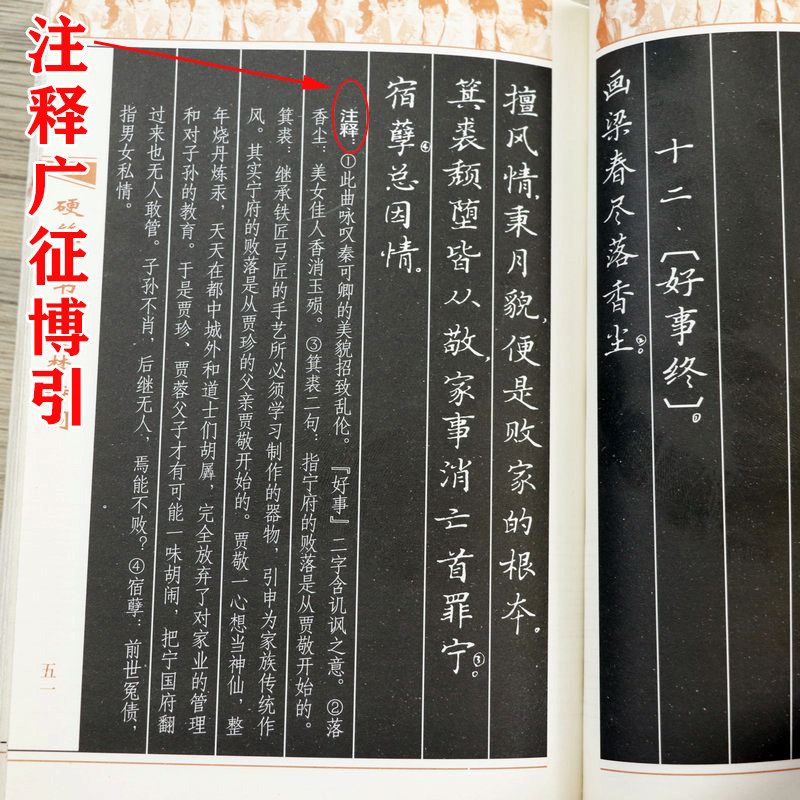 注释广征博引
十二、〔好事终〕①
画梁春尽落香尘②。
擅风情，秉月貌，便是败家的根本。
箕裘颓堕皆从敬，家事消亡首罪宁③。
宿孽总因情④。
注释：①此曲咏叹秦可卿的美貌招致乱伦。『好事』二字含讥讽之意。②落
香尘：美女佳人香消玉殒。③箕裘二句：指宁府的败落是从贾敬开始的。
箕裘：继承铁匠弓匠的手艺所必须学习制作的器物，引申为家族传统作
风。其实宁府的败落是从贾珍的父亲贾敬开始的。贾敬一心想当神仙，整
年烧丹炼汞，天天在都中城外和道士们胡羼，完全放弃了对家业的管理
和对子孙的教育。于是贾珍、贾蓉父子才有可能一味胡闹，把宁国府翻
过来也无人敢管。子孙不肖，后继无人，焉能不败？④宿孽：前世冤债，
指男女私情。
硬
五一